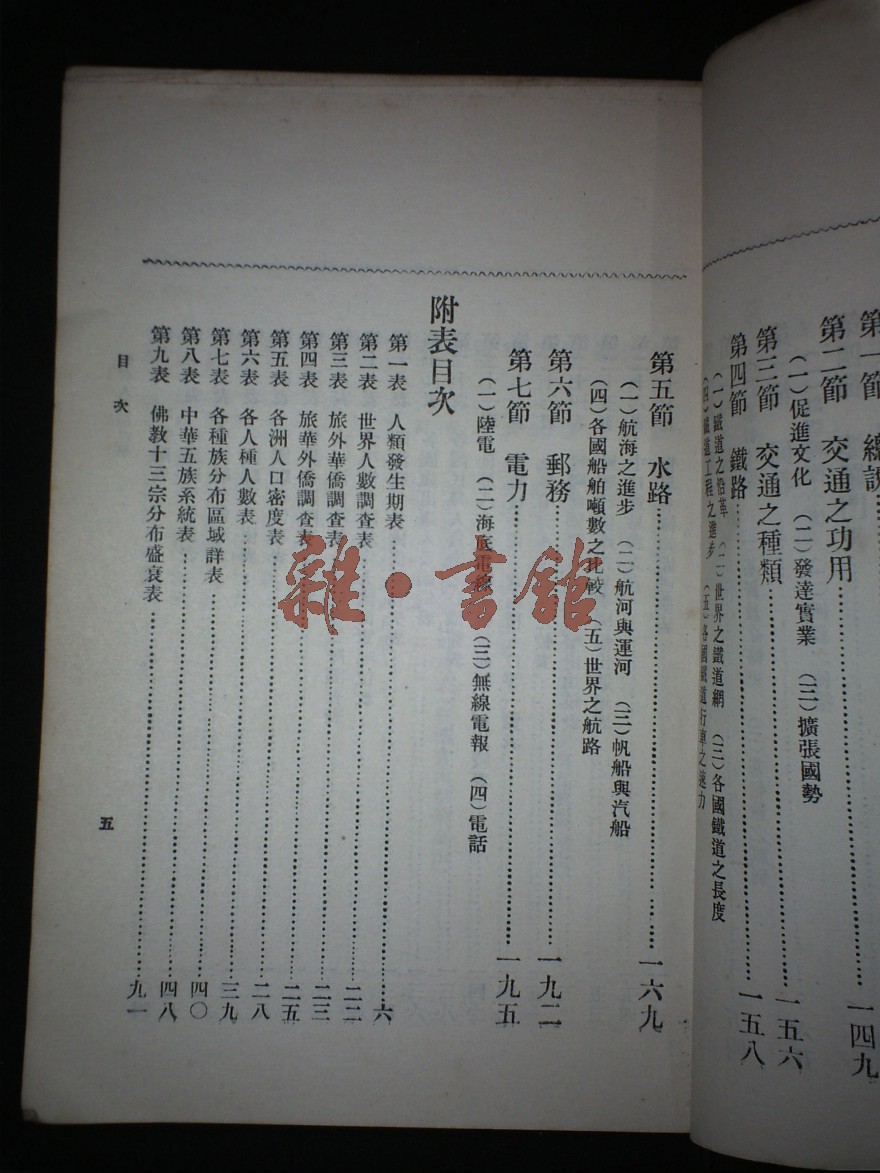 第一節　總說……一四九
第二節　交通之功用
（一）促進文化　（二）發達實業　（三）擴張國勢
第三節　交通之種類……一五六
第四節　鐵路……一五八
（一）鐵道之沿革　（二）世界之鐵道網　（三）各國鐵道之長度
（四）鐵道工程之進步　（五）各國鐵道行車之速力
第五節　水路……一六九
（一）航海之進步　（二）航河與運河　（三）帆船與汽船
（四）各國船舶噸數之比較　（五）世界之航路
第六節　郵務……一九二
第七節　電力……一九五
（一）陸電　（二）海底電線　（三）無線電報　（四）電話
附表目次
第一表　人類發生期表……六
第二表　世界人數調查表……二二
第三表　旅外華僑調查表……二三
第四表　旅華外僑調查表……二五
第五表　各洲人口密度表……二八
第六表　各人種人數表……三九
第七表　各種族分布區域詳表……四〇
第八表　中華五族系統表……四八
第九表　佛教十三宗分布盛衰表……九一
目次
五
雜·書館